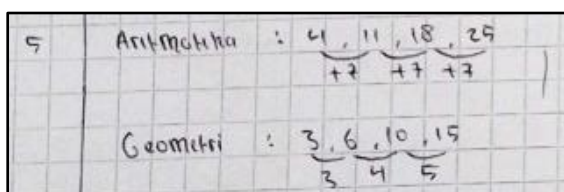 5 Aritmatika : 4, 11, 18, 25
+7 +7 +7
Geometri : 3, 6, 10, 15
3 4 5